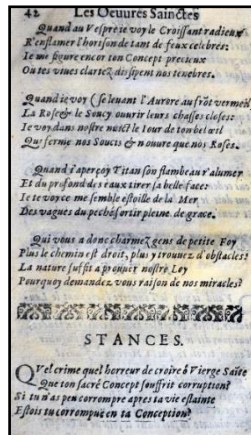 42 Les Oeuures Sainctes
Quand au Vespre ie voy le Croissant radieux
R'enflamer l'horison de tant de feux celebres:
Ie me figure encor ton Concept precieux
Ou tes viues clartez dissipent nos tenebres.
Quand ie voy (se leuant l'Aurore au frōt vermeil
La Rose & le Soucy ouurir leurs chasses closes:
Ie voy dans nostre nuict le iour de ton bel œil
Qui ferme nos Soucis & n'ouure que nos Roses.
Quand i'aperçoy Titan son flambeau r'alumer
Et du profond des eaux tirer sa belle face:
Ie te voy ce me semble estoille de la Mer
Des vagues du peché sortir pleine de grace.
Qui vous a donc charmez gens de petite Foy
Plus le chemin est droit, plus y trouuez d'obstacles!
La nature suffit a prouuer nostre Loy
Pourquoy demandez vous raison de nos miracles?
STANCES.
Quel crime quel horreur de croire ô Vierge Saīte
Que ton sacré Concept souffrit corruption?
Si tu n'as peu corrompre apres ta vie estainte
Estois tu corrompuë en ta Conception?